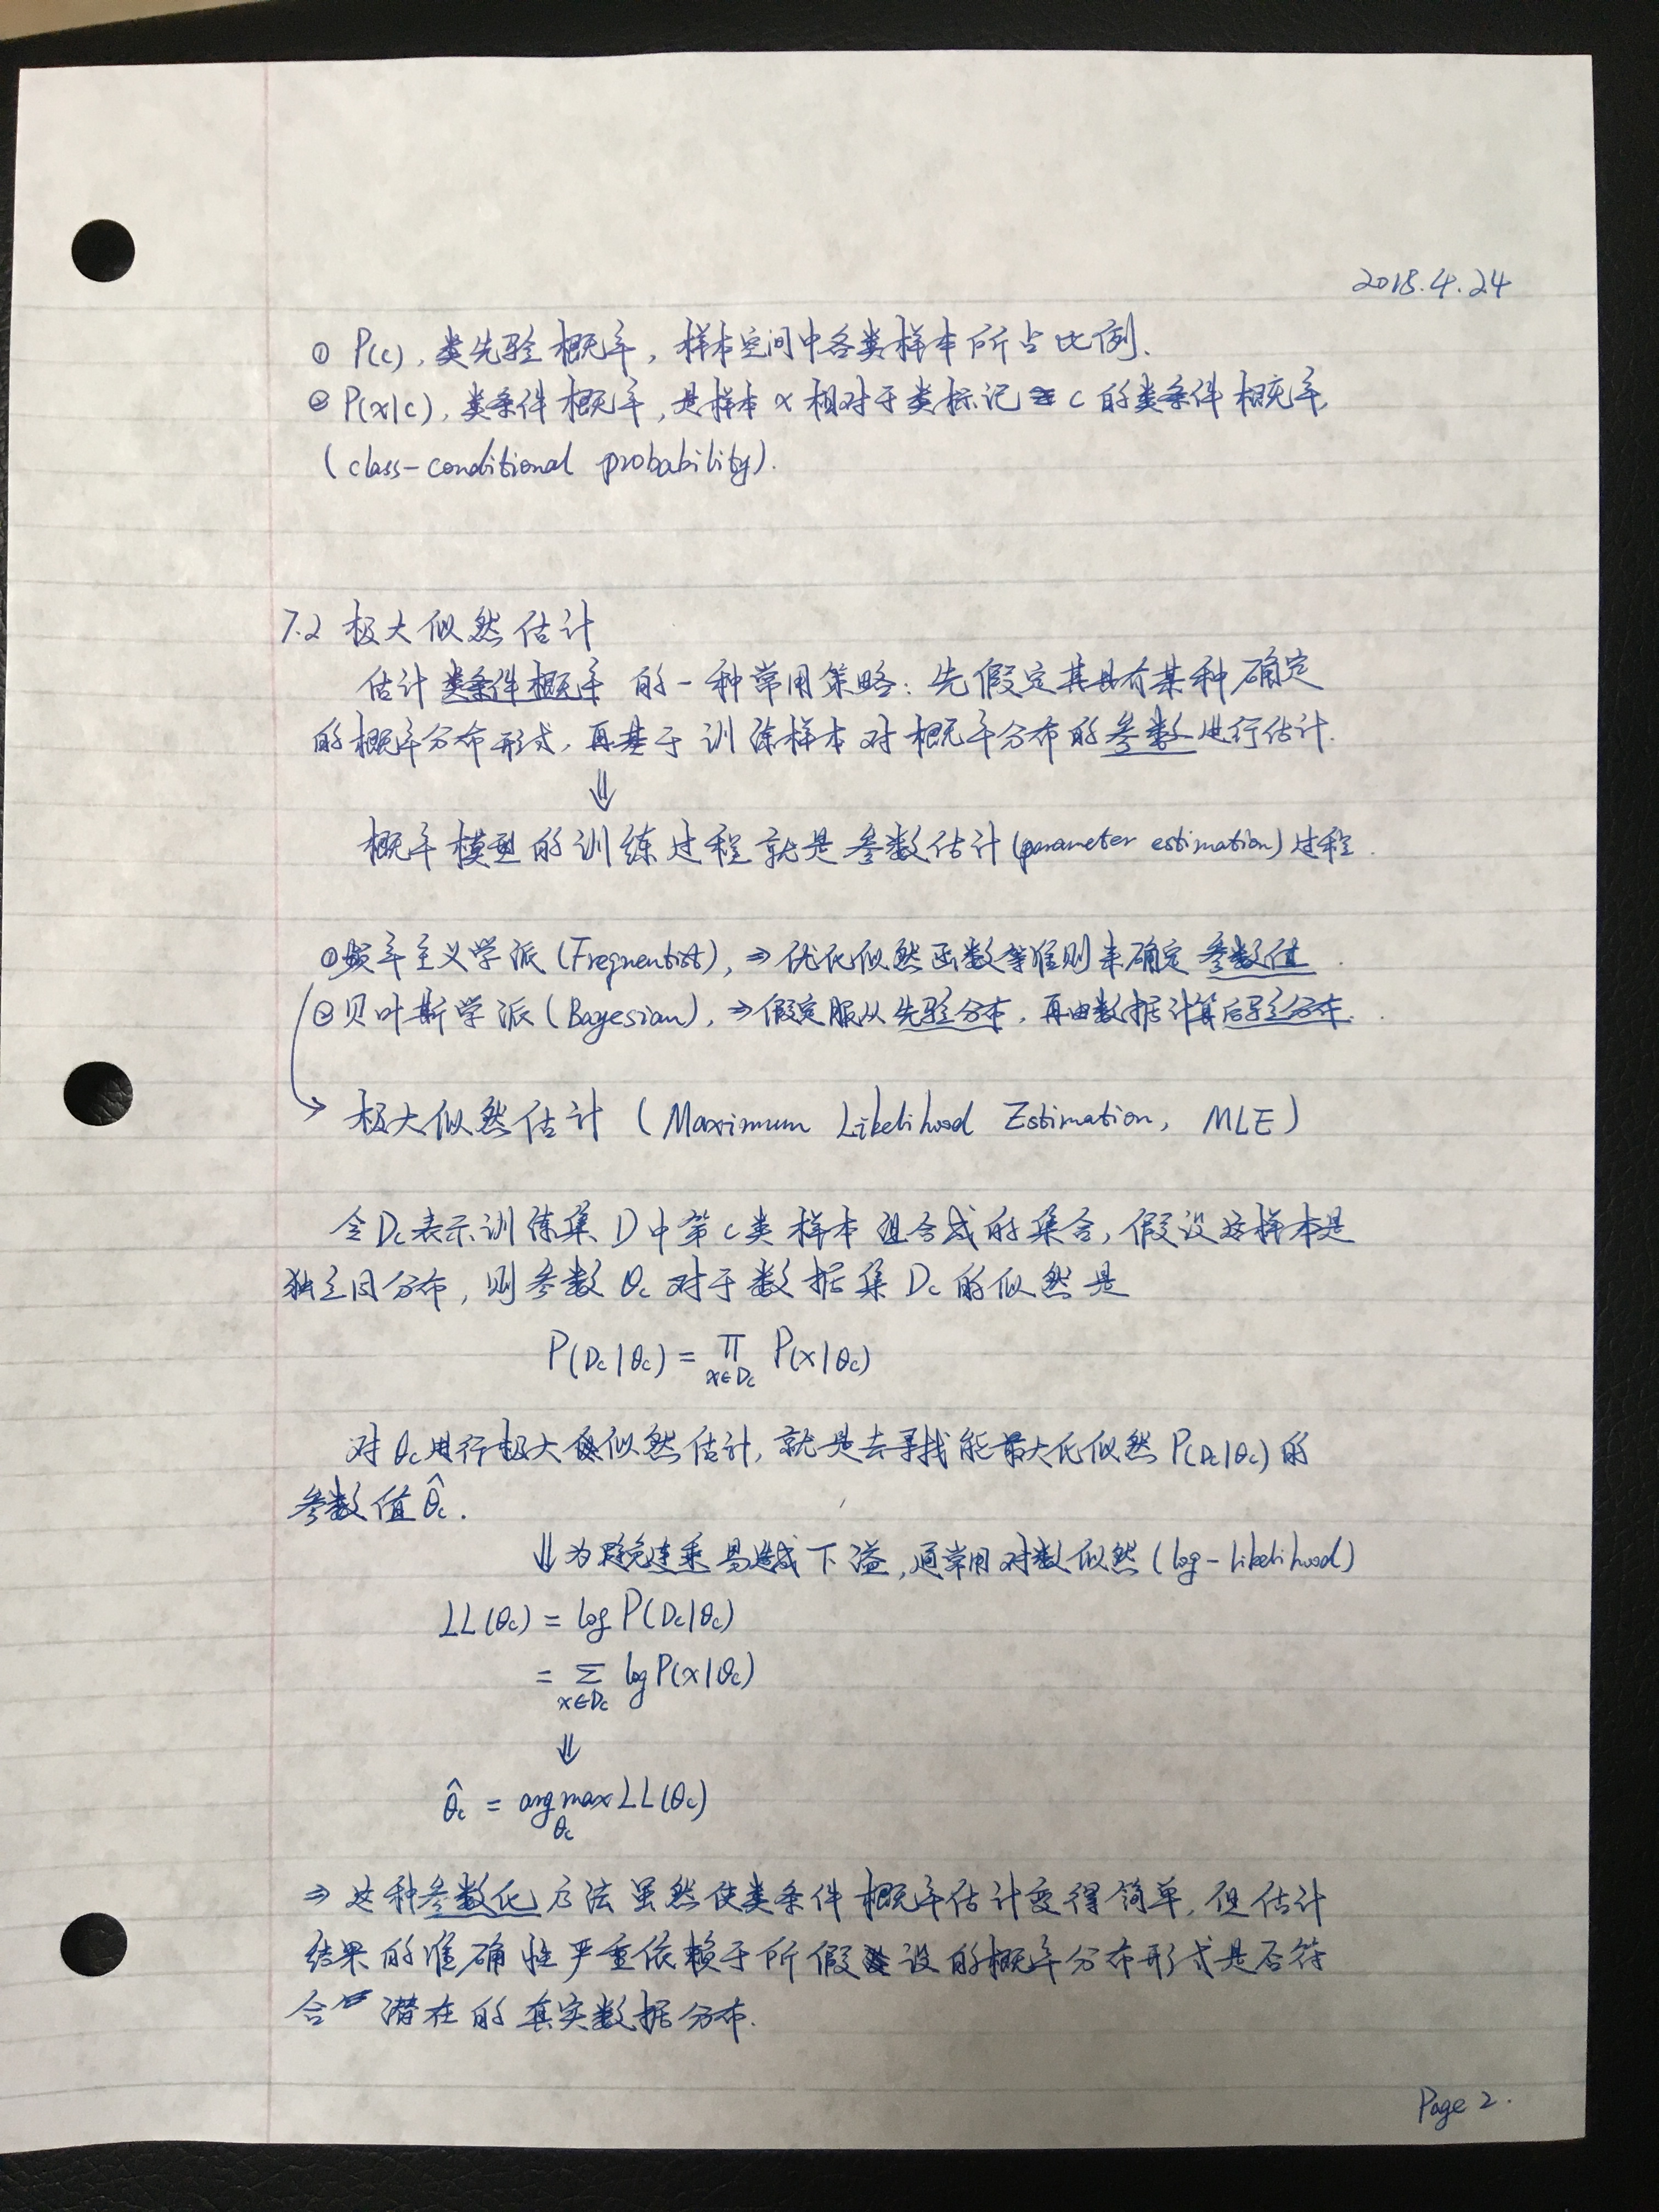 2018.4.24
① P(c), 类先验概率, 样本空间中各类样本所占比例.
② P(x|c), 类条件概率, 是样本 x 相对于类标记 c 的类条件概率,
(class-conditional probability).
7.2 极大似然估计
估计类条件概率的一种常用策略: 先假定其具有某种确定
的概率分布形式, 再基于训练样本对概率分布的参数进行估计.
⇓
概率模型的训练过程就是参数估计(parameter estimation)过程.
①频率主义学派(Frequentist), ⇒优化似然函数等准则来确定参数值.
②贝叶斯学派(Bayesian), ⇒假定服从先验分布, 再由数据计算后验分布.
→ 极大似然估计 (Maximum Likelihood Estimation, MLE)
令 Dc 表示训练集 D 中第 c 类样本组合成的集合, 假设这样本是
独立同分布, 则参数 θc 对于数据集 Dc 的似然是
P(Dc|θc) = Π P(x|θc)
x∈Dc
对 θc 进行极大似然估计, 就是去寻找能最大化似然 P(Dc|θc) 的
参数值 θ̂c.
⇓ 为避免连乘易造成下溢, 通常用对数似然(log-likelihood)
LL(θc) = log P(Dc|θc)
= Σ log P(x|θc)
x∈Dc
⇓
θ̂c = arg max LL(θc)
θc
⇒ 这种参数化方法虽然使类条件概率估计变得简单, 但估计
结果的准确性严重依赖于所假设的概率分布形式是否符
合潜在的真实数据分布.
Page 2.